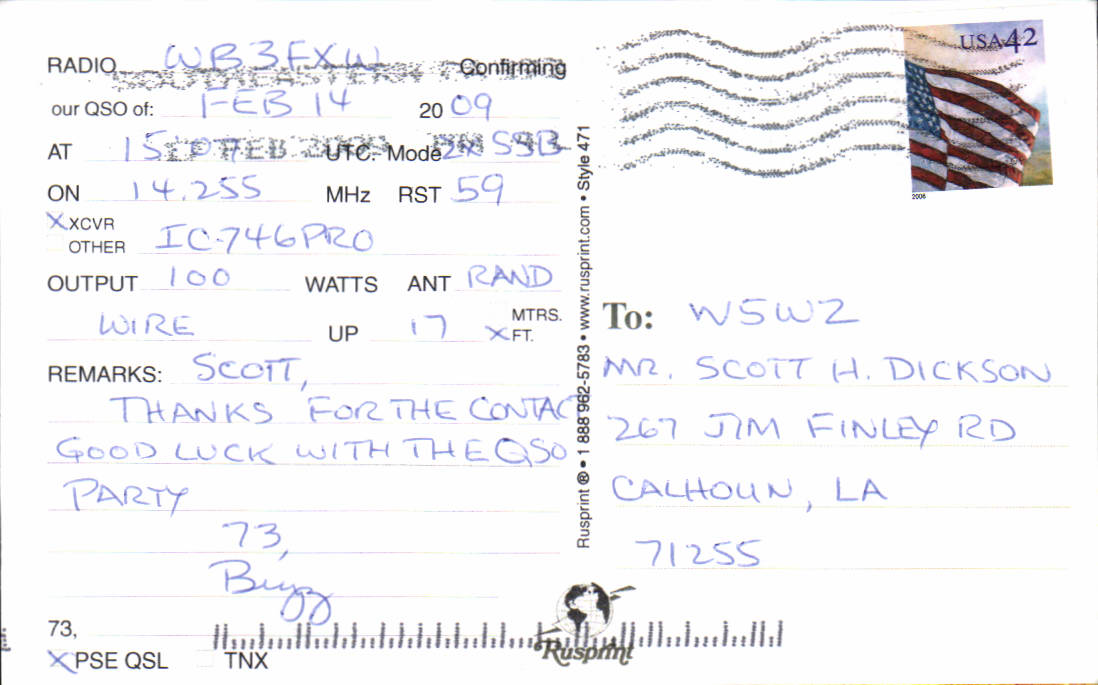 RADIO WB3FXW Confirming
our QSO of: FEB 14 20 09
AT UTC. Mode 2x SSB
ON 14.255 MHz RST 59
X XCVR
OTHER IC-746PRO
OUTPUT 100 WATTS ANT RAND
WIRE UP 17 MTRS.
X FT.
REMARKS: SCOTT,
THANKS FOR THE CONTACT
GOOD LUCK WITH THE QSO
PARTY
73,
Buzz
73,
X PSE QSL TNX
Rusprint ® • 1 888 962-5783 • www.rusprint.com • Style 471
USA 42
2006
To: W5WZ
MR. SCOTT H. DICKSON
267 JIM FINLEY RD
CALHOUN, LA
71255
Rusprint